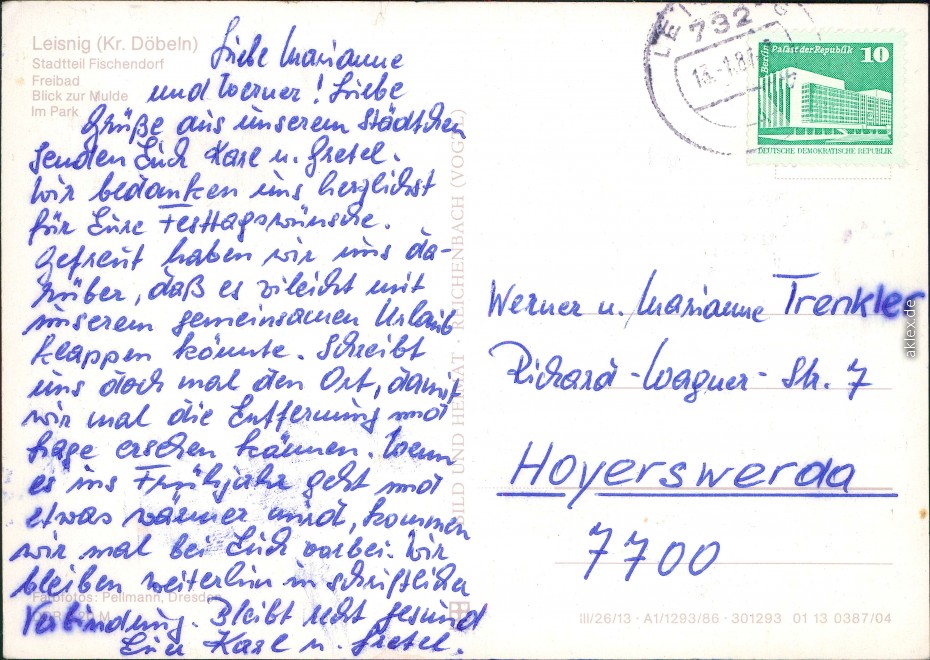 Leisnig (Kr. Döbeln)
Stadtteil Fischendorf
Freibad
Blick zur Mulde
Im Park
Liebe Marianne
und Werner! Liebe
Grüße aus unserem Städtchen
senden Euch Karl u. Gretel.
Wir bedanken uns herzlichst
für Eure Festtagswünsche.
Gefreut haben wir uns da-
rüber, daß es vileicht mit
unserem gemeinsamen Urlaub
klappen könnte. Schreibt
uns doch mal den Ort, damit
wir mal die Entfernung und
Lage ersehen können. Wenn
es ins Frühjahr geht und
etwas wärmer wird, kommen
wir mal bei Euch vorbei. Wir
bleiben weiterhin in schriftlicher
Verbindung. Bleibt recht gesund
Eure Karl u. Gretel.
Farbfotos: Pellmann, Dresden
BILD UND HEIMAT · REICHENBACH (VOGTL)
732
Berlin
Palast der Republik
10
DEUTSCHE DEMOKRATISCHE REPUBLIK
Werner u. Marianne Trenkler
Richard-Wagner-Str. 7
Hoyerswerda
7700
III/26/13 · A1/1293/86 · 301293 01 13 0387/04
aklex.de